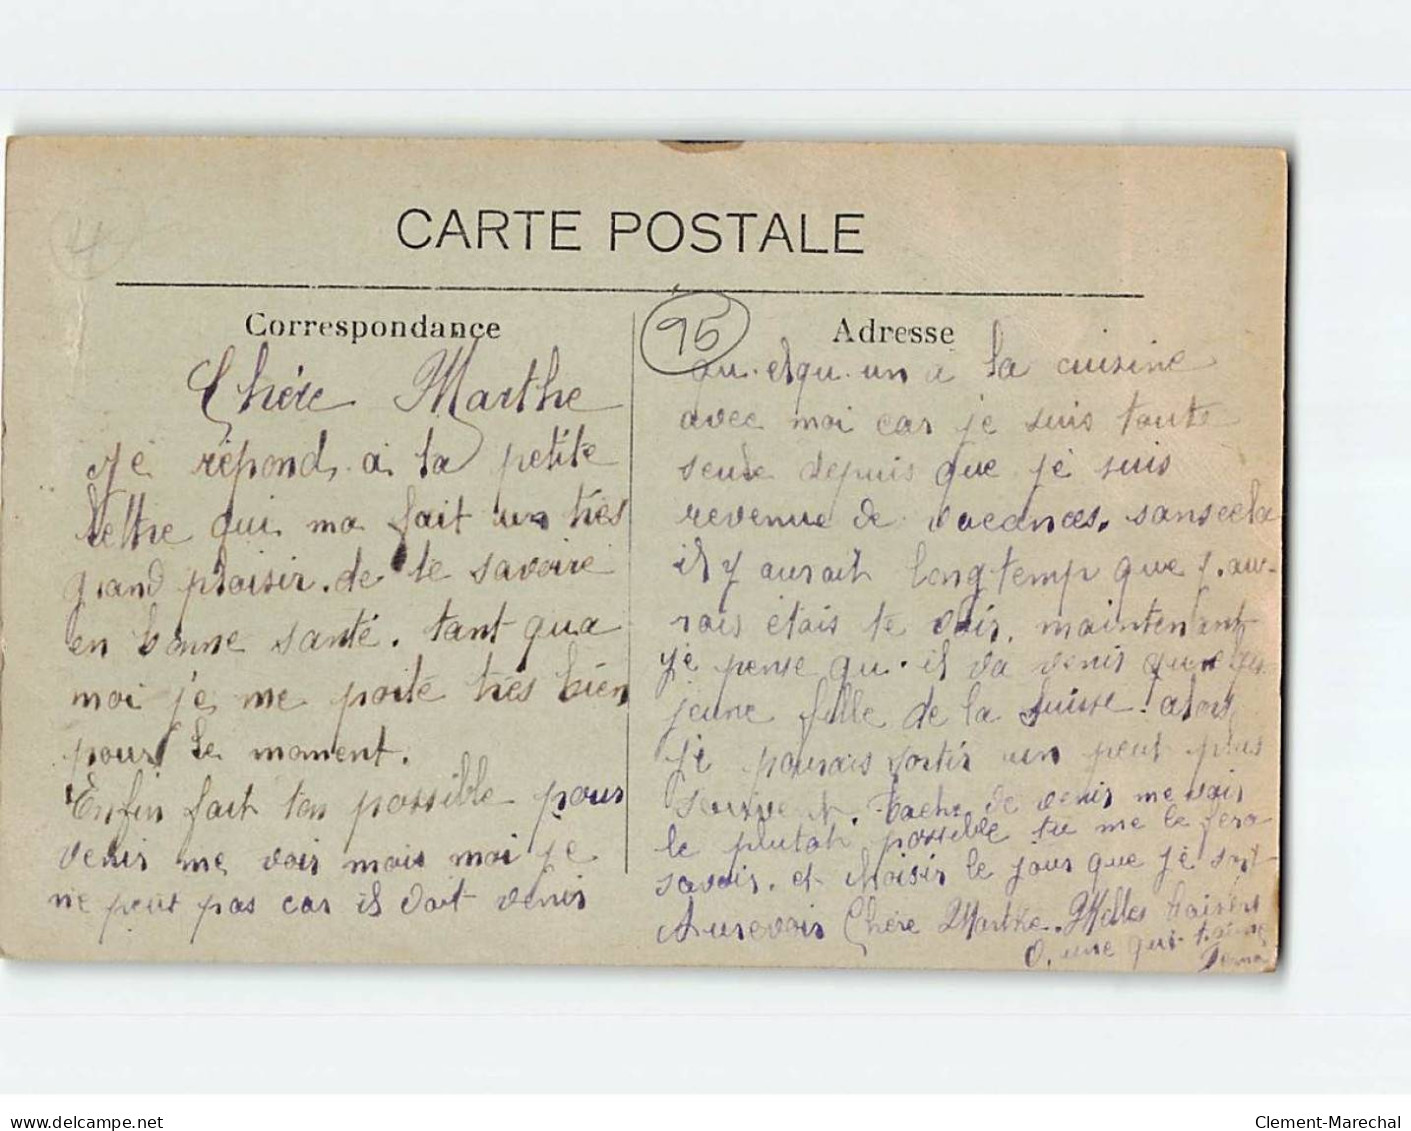 4
CARTE POSTALE
Correspondance
Chére Marthe
Je répond a ta petite
lettre qui ma fait un trés
grand plaisir. de te savoire
en bonne santé. tant qua
moi je me porte trés bien
pour le moment.
Enfin fait ton possible pour
venir me voir mais moi je
ne peut pas car il doit venir
95
Adresse
qu.elqu.un a la cuisine
avec moi car je suis toute
seule depuis que je suis
revenue de vacances. sans cela
il y aurait longtemp que j.au-
rais étais te voir. maintenant
je pense qu.il va venir une
jeune fille de la Suisse. alors
je pourais sortir un peut plus
souvent. tache de venir me voir
le plutot possible tu me le fera
savoir. et choisir le jour que je sort
Aurevoir Chére Marthe. Milles baisers
D.une qui t.aime
delcampe.net
Clement-Marechal